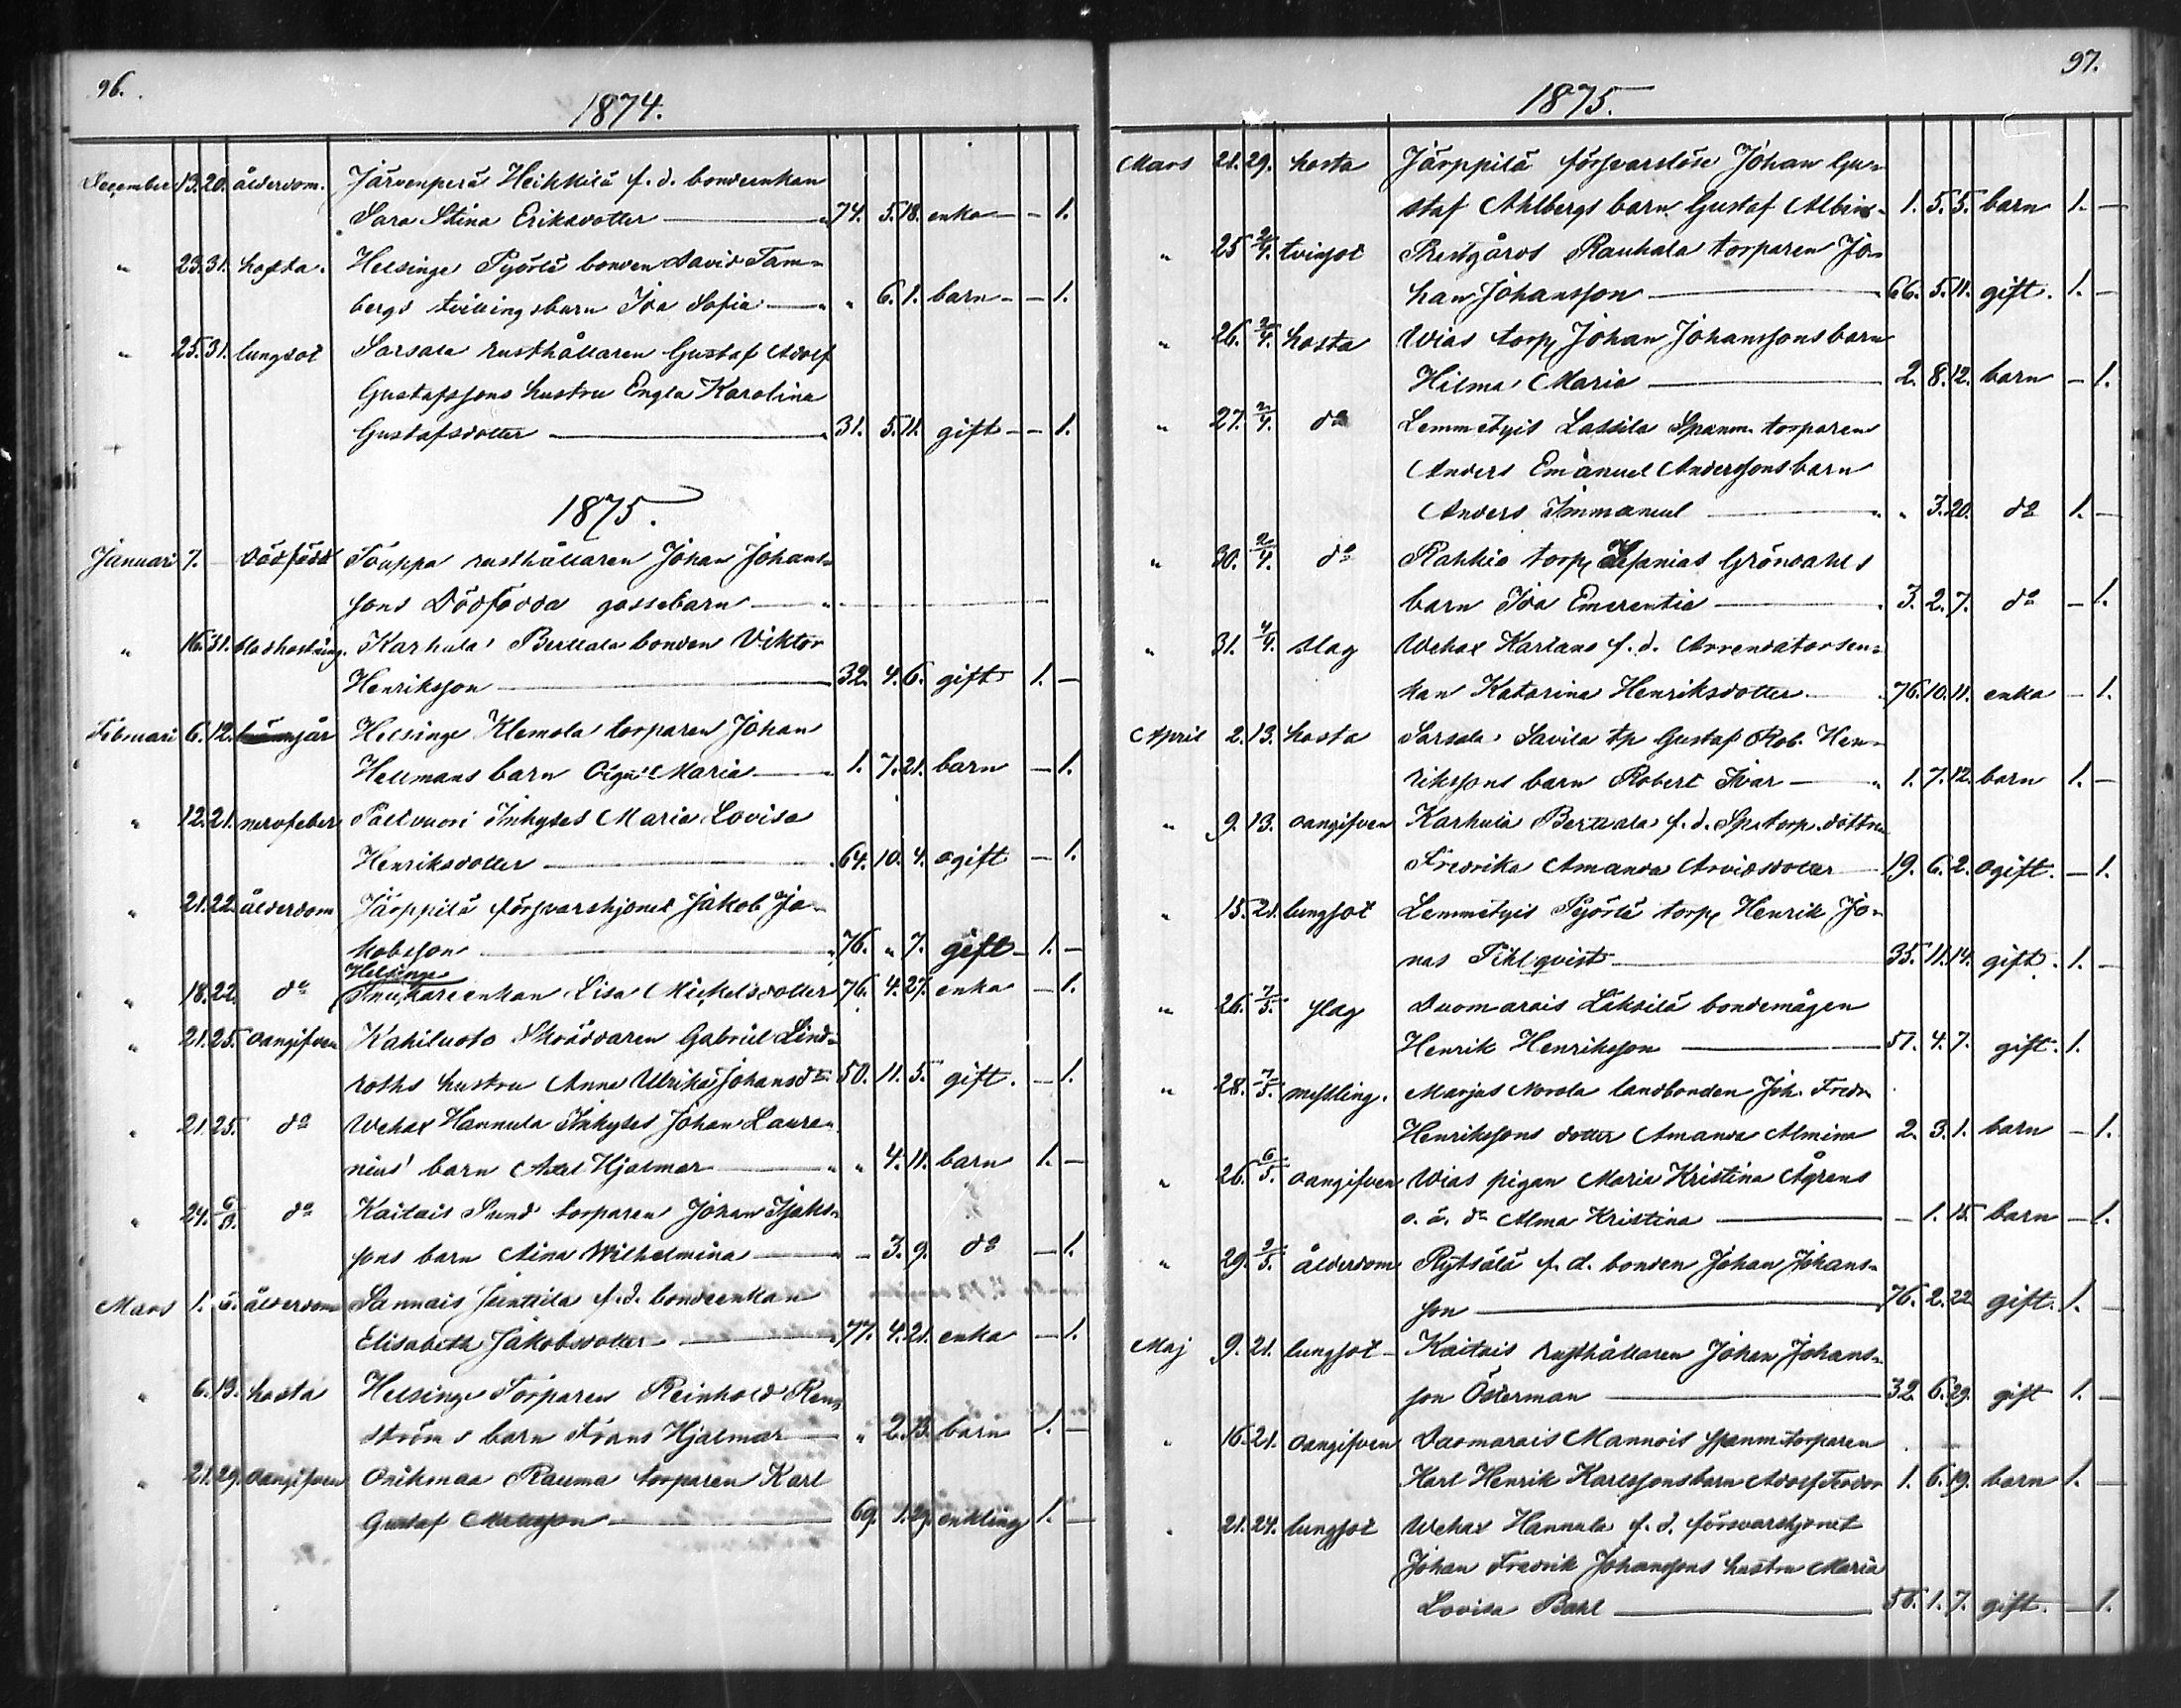 96.
1874.
December 13. 20. ålderdom. Järvenperä Heikkilä f. d. bondeenkan
Sara Stina Eriksdotter 74. 5. 18. enka 1.
" 23. 31. hosta. Helsinge Pyörlä bonden David Tam-
bergs tvillingsbarn Ida Sofia " 6. 1. barn 1.
" 25. 31. lungsot Sarsala rusthållaren Gustaf Adolf
Gustafssons hustru Engla Karolina
Gustafsdotter 31. 5. 11. gift 1.
1875.
Januari 7. - dödfödd Touppa rusthållaren Johan Johans-
sons Dödfödda gossebarn
" 16. 31. blodhostning. Karhula Berttala bonden Viktor
Henriksson 32. 4. 6. gift 1.
Februari 6. 12. Helsinge Klemola torparen Johan
Hellmans barn Olga Maria 1. 7. 21. barn 1.
" 12. 21. nervfeber Palvuori Inhyses Maria Lovisa
Henriksdotter 64. 10. 4. ogift 1.
" 21. 22. ålderdom Järppilä försvarshjonet Jakob Ja-
kobsson 76. " 7. gift 1.
Helsinge
" 18. 22. do enkan Lisa Mickelsdotter 76. 4. 27. enka 1.
" 21. 25. oangifven Kahiluoto Skräddaren Gabriel Lind-
roths hustru Anna Ulrika Johansdr 50. 11. 5. gift. 1.
" 21. 25. do Wehax Hannula Inhyses Johan Lauren-
nius' barn Axel Hjalmar " 4. 11. barn 1.
" 24. 6/3. do Kaitais Sund torparen Johan
sons barn Aina Wilhelmina - 3. 9. do 1.
Mars 1. 6. ålderdom Sannais Junttila f. d. bondeenkan
Elisabeth Jakobsdotter 77. 4. 21. enka 1.
" 6. 13. hosta Helsinge Torparen Reinhold Ren-
ströms barn Frans Hjalmar " 2. 13. barn 1.
" 21. 29. oangifven Orikmaa Rauma torparen Karl
Gustaf 69. 1. 29. enkling 1.
97.
1875.
Mars 21. 29. hosta Järppilä försvarslöse Johan Gu-
staf Ahlbergs barn Gustaf Albin 1. 5. 5. barn 1.
" 25 2/4. tvinsot Prestgårds Rauhala torparen Jo-
han Johansson 66. 5. 11. gift. 1.
" 26. 2/4. hosta Wias torp. Johan Johanssons barn
Hilma Maria 2. 8. 12. barn 1.
" 27. 2/4. do Lemmetyis Lassila Spanm. torparen
Anders Emanuel Anderssons barn
Anders Immanuel " 3. 20. do 1.
" 30. 2/4. do Rahkio torp. Sefanias Gröndahls
barn Ida Emerentia 3. 2. 7. do 1.
" 31. 4/4. slag Wehax Karlans f. d. Arrendatorsen-
kan Katarina Henriksdotter 76. 10. 11. enka 1.
April 2. 13. hosta Sarsala Savila tp Gustaf Rob. Hen-
rikssons barn Robert Ivar 1. 7. 12. barn 1.
" 9. 13. oangifven Karhula Berttala f. d. Sp. torp. dottren
Fredrika Amanda Arvidsdotter 19. 6. 2. ogift. 1.
" 15. 21. lungsot Lemmetyis Pyörlä torp. Henrik Jo-
nas Fihlqvist 35. 11. 14. gift. 1.
" 26. 7/5. slag Duomarais Läksilä bondemågen
Henrik Henriksson 51. 4. 7. gift. 1.
" 28. 7/5. messling. Marjas Norola landbonden Joh. Fredr.
Henrikssons dotter Amanda Almina 2. 3. 1. barn 1.
" 26. 6/5. oangifven Wias pigan Maria Kristina Ågrens
o. ä. dr Alma Kristina - 1. 15. barn 1.
" 29. 2/5. ålderdom Rytsälä f. d. bonden Johan Johans-
son 76. 2. 22 gift. 1.
Maj 9. 21. lungsot Kaitais rusthållaren Johan Johans-
son Österman 32. 6. 29. gift 1.
" 16. 21. oangifven Duomarais Mannois spanm. torparen
Karl Henrik Karlssons barn Adolf Feodor 1. 6. 19. barn 1.
" 21. 24. lungsot Wehax Hannula f. d. försvarshjonet
Johan Fredrik Johanssons hustru Maria
Lovisa Bahl 56. 1. 7. gift. 1.